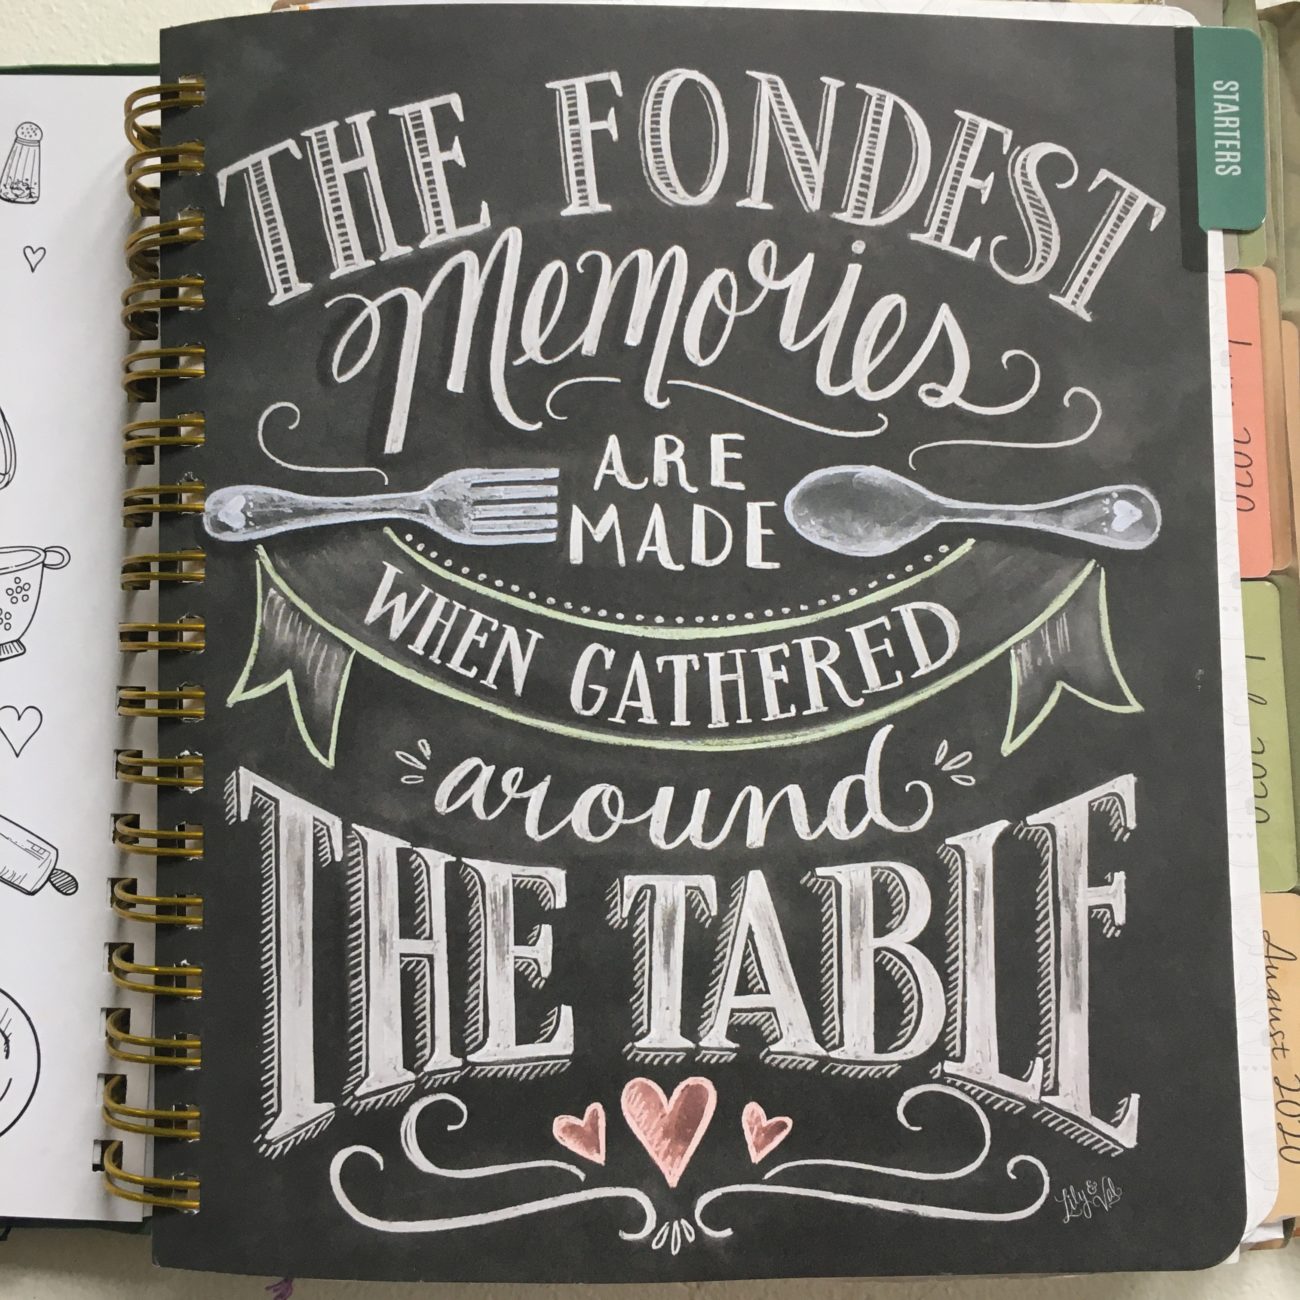 THE FONDEST
Memories
ARE
MADE
WHEN GATHERED
around
THE TABLE
Lily & Val
STARTERS
2020
2020
August 2020